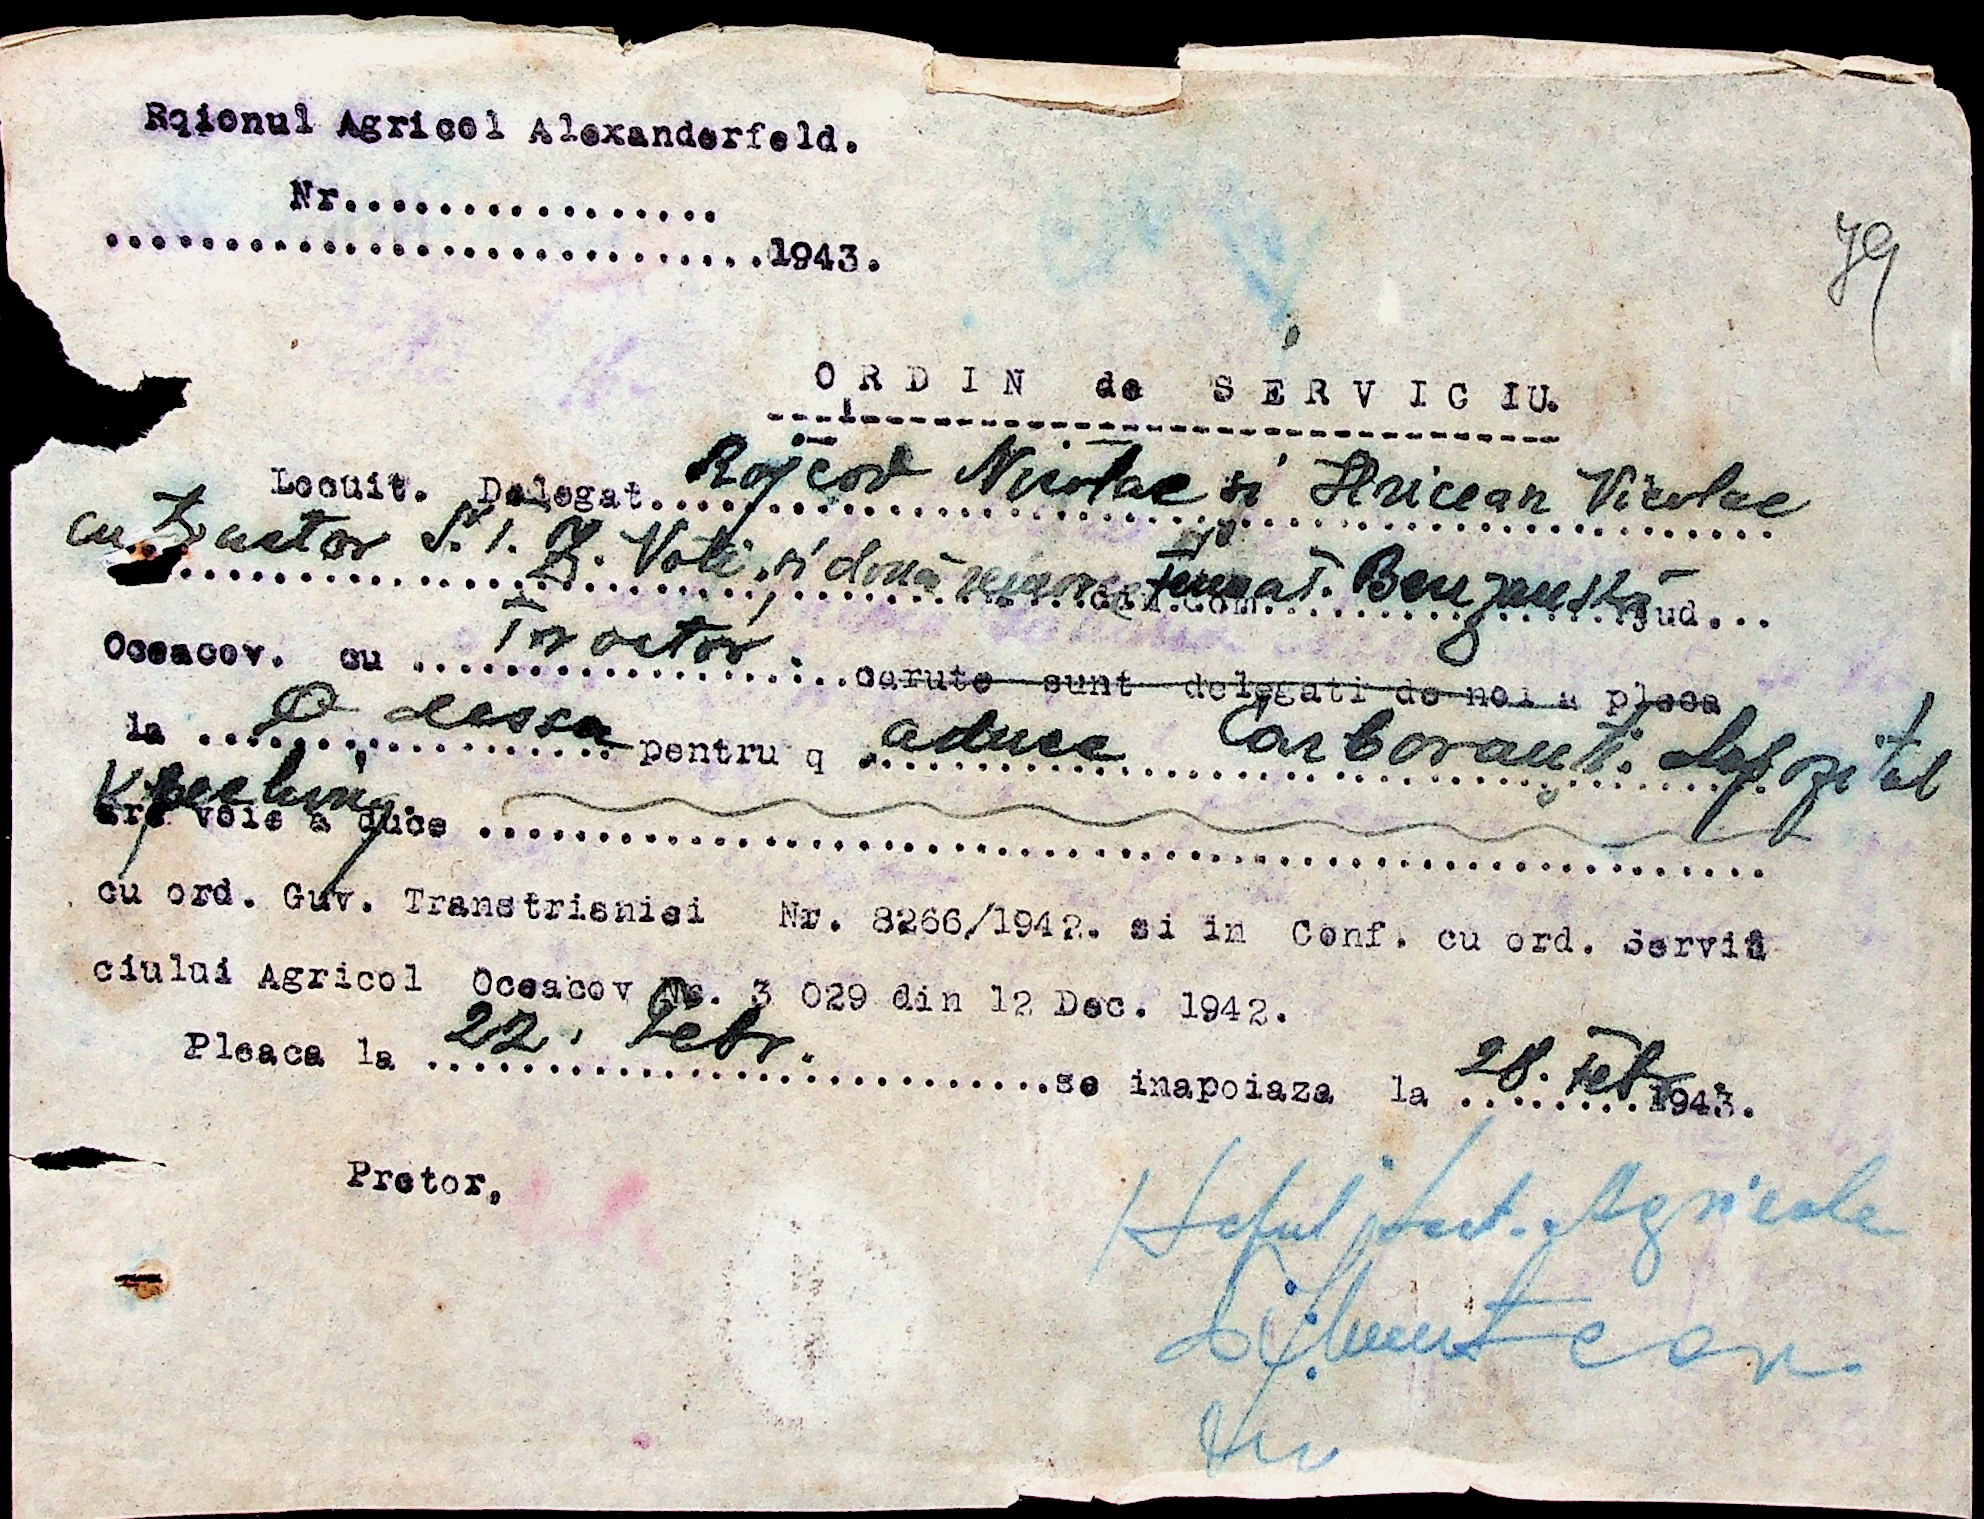 Rqionul Agricol Alexanderfeld.
Nr.................
..............................1943.
79
ORDIN de SERVICIU.
Locuit. Delegat. Rojcov Nicolae si Hricean Nicolae
cu Tractor S.T.Z. Noti, si două remorce din.com. Ferma T. Benzanskă jud...
Oceacov. cu Tractor carute sunt delegati de noi a pleca
la Odessa pentru q aduce Carboranti. depozitul
are voie a duce
cu ord. Guv. Transtrisniei Nr. 8266/1942. si in Conf. cu ord. Servii
ciului Agricol Oceacov Nr. 3 029 din 12 Dec. 1942.
Pleaca la 22. Febr. se inapoiaza la 28. Feb 1943.
Pretor,
Seful Sect. Agricole